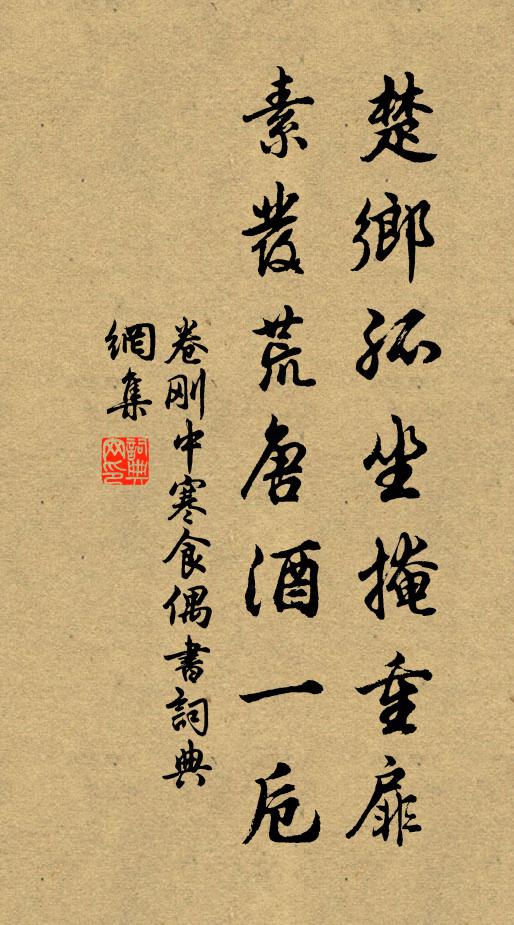 楚鄉孤坐掩重扉
素發荒唐酒一卮
卷刚中寒食偶書詞典
網集
詞典網印